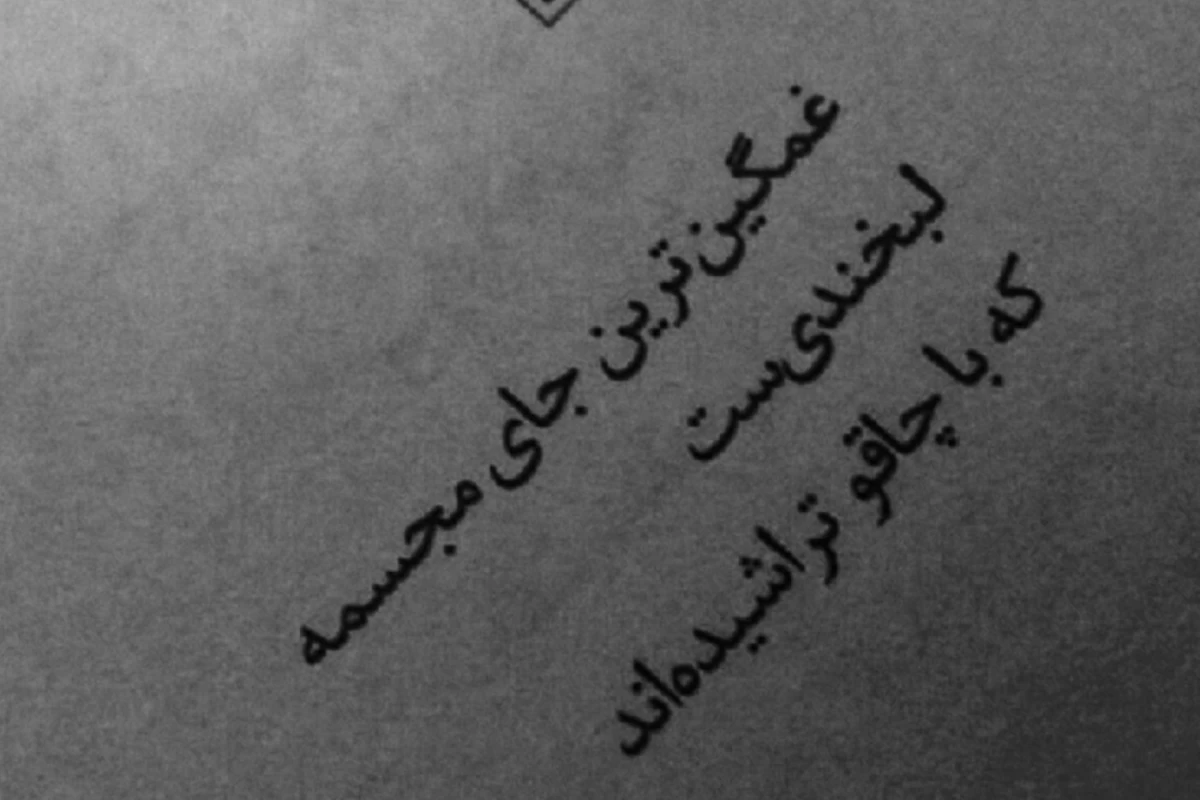 غمگین‌ترین جای مجسمه
لبخندی‌ست
که با چاقو تراشیده‌اند